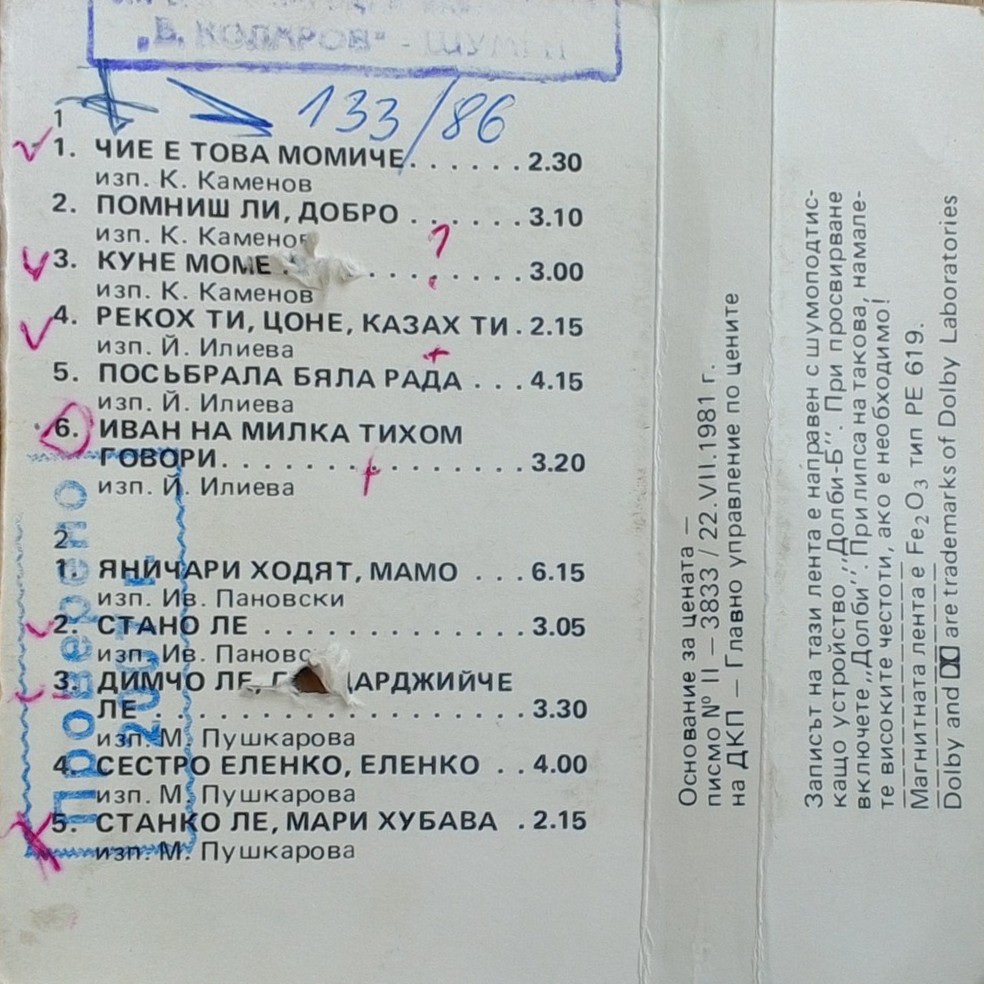 „В. КОЛАРОВ" - ШУМЕН
133/86
1
1. ЧИЕ Е ТОВА МОМИЧЕ. . . . . . 2.30
изп. К. Каменов
2. ПОМНИШ ЛИ, ДОБРО . . . . . . 3.10
изп. К. Каменов
3. КУНЕ МОМЕ . . . . . . 3.00
изп. К. Каменов
4. РЕКОХ ТИ, ЦОНЕ, КАЗАХ ТИ . 2.15
изп. Й. Илиева
5. ПОСЬБРАЛА БЯЛА РАДА . . . 4.15
изп. Й. Илиева
6. ИВАН НА МИЛКА ТИХОМ
ГОВОРИ. . . . . . . . . . . . . . . . 3.20
изп. Й. Илиева
2
1. ЯНИЧАРИ ХОДЯТ, МАМО . . . 6.15
изп. Ив. Пановски
2. СТАНО ЛЕ . . . . . . . . . . . . . . 3.05
изп. Ив. Пановс
3. ДИМЧО ЛЕ, АРДЖИЙЧЕ
ЛЕ . . . . . . . . . . . . . . . . . . . 3.30
изп. М. Пушкарова
4. СЕСТРО ЕЛЕНКО, ЕЛЕНКО . . 4.00
изп. М. Пушкарова
5. СТАНКО ЛЕ, МАРИ ХУБАВА . 2.15
изп. М. Пушкарова
Проверено
2001 г.
Основание за цената —
писмо № II — 3833 / 22. VII.1981 г.
на ДКП — Главно управление по цените
Записът на тази лента е направен с шумоподтис-
кащо устройство „Долби-Б". При просвирване
включете „Долби". При липса на такова, намале-
те високите честоти, ако е необходимо!
Магнитната лента е Fe2O3 тип PE 619.
Dolby and are trademarks of Dolby Laboratories